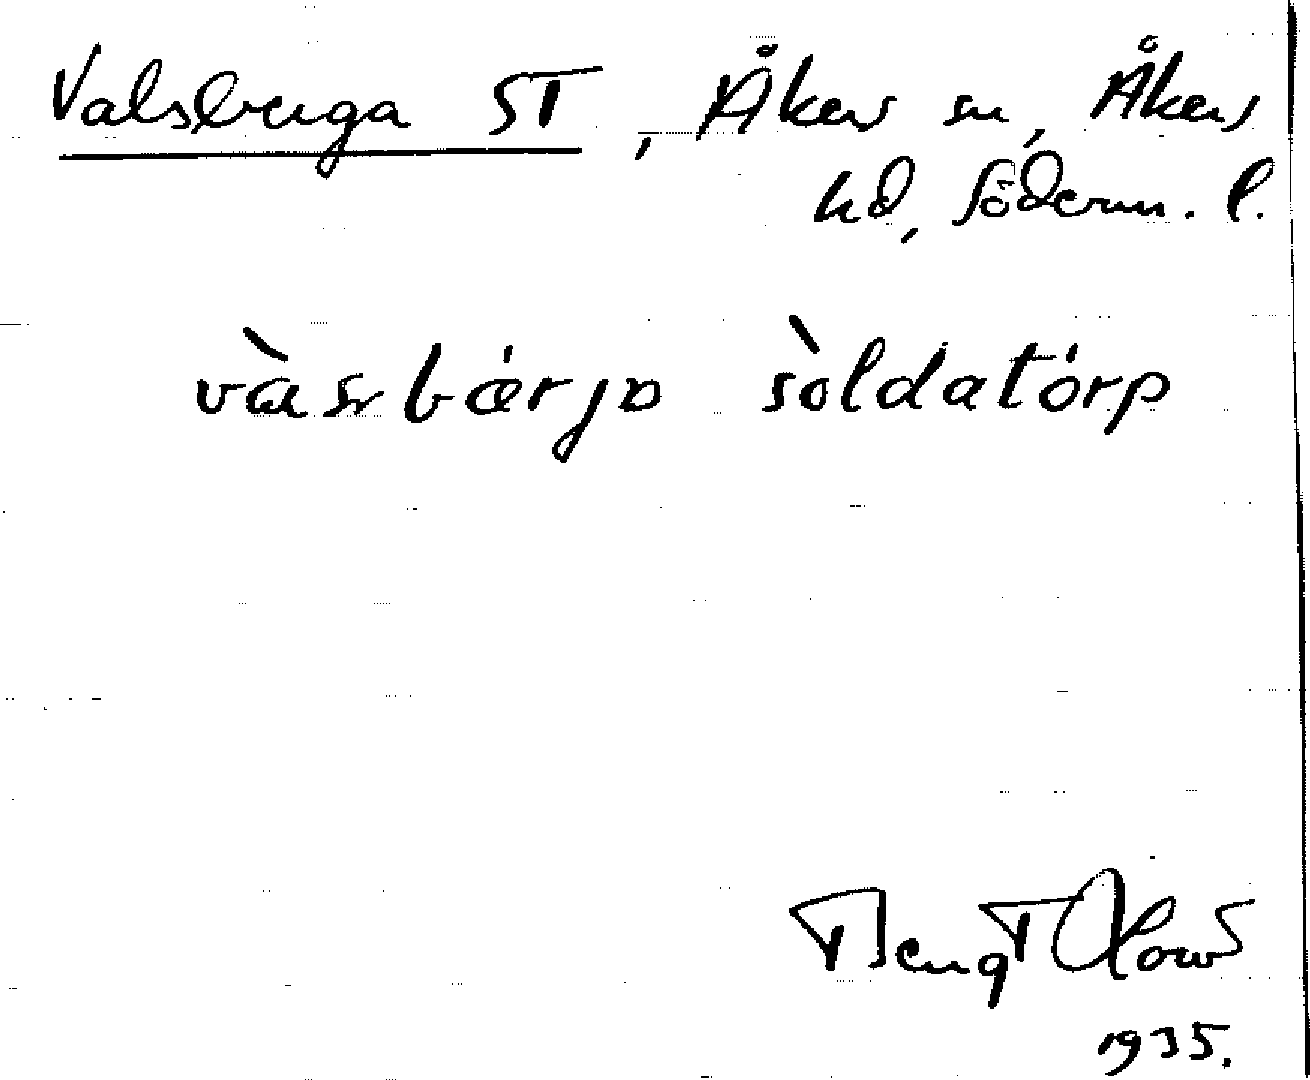 Valsberga ST, Åkers sn, Åkers
hd, Söderm. l.
sòldatórp
Bengt Olows
1935.